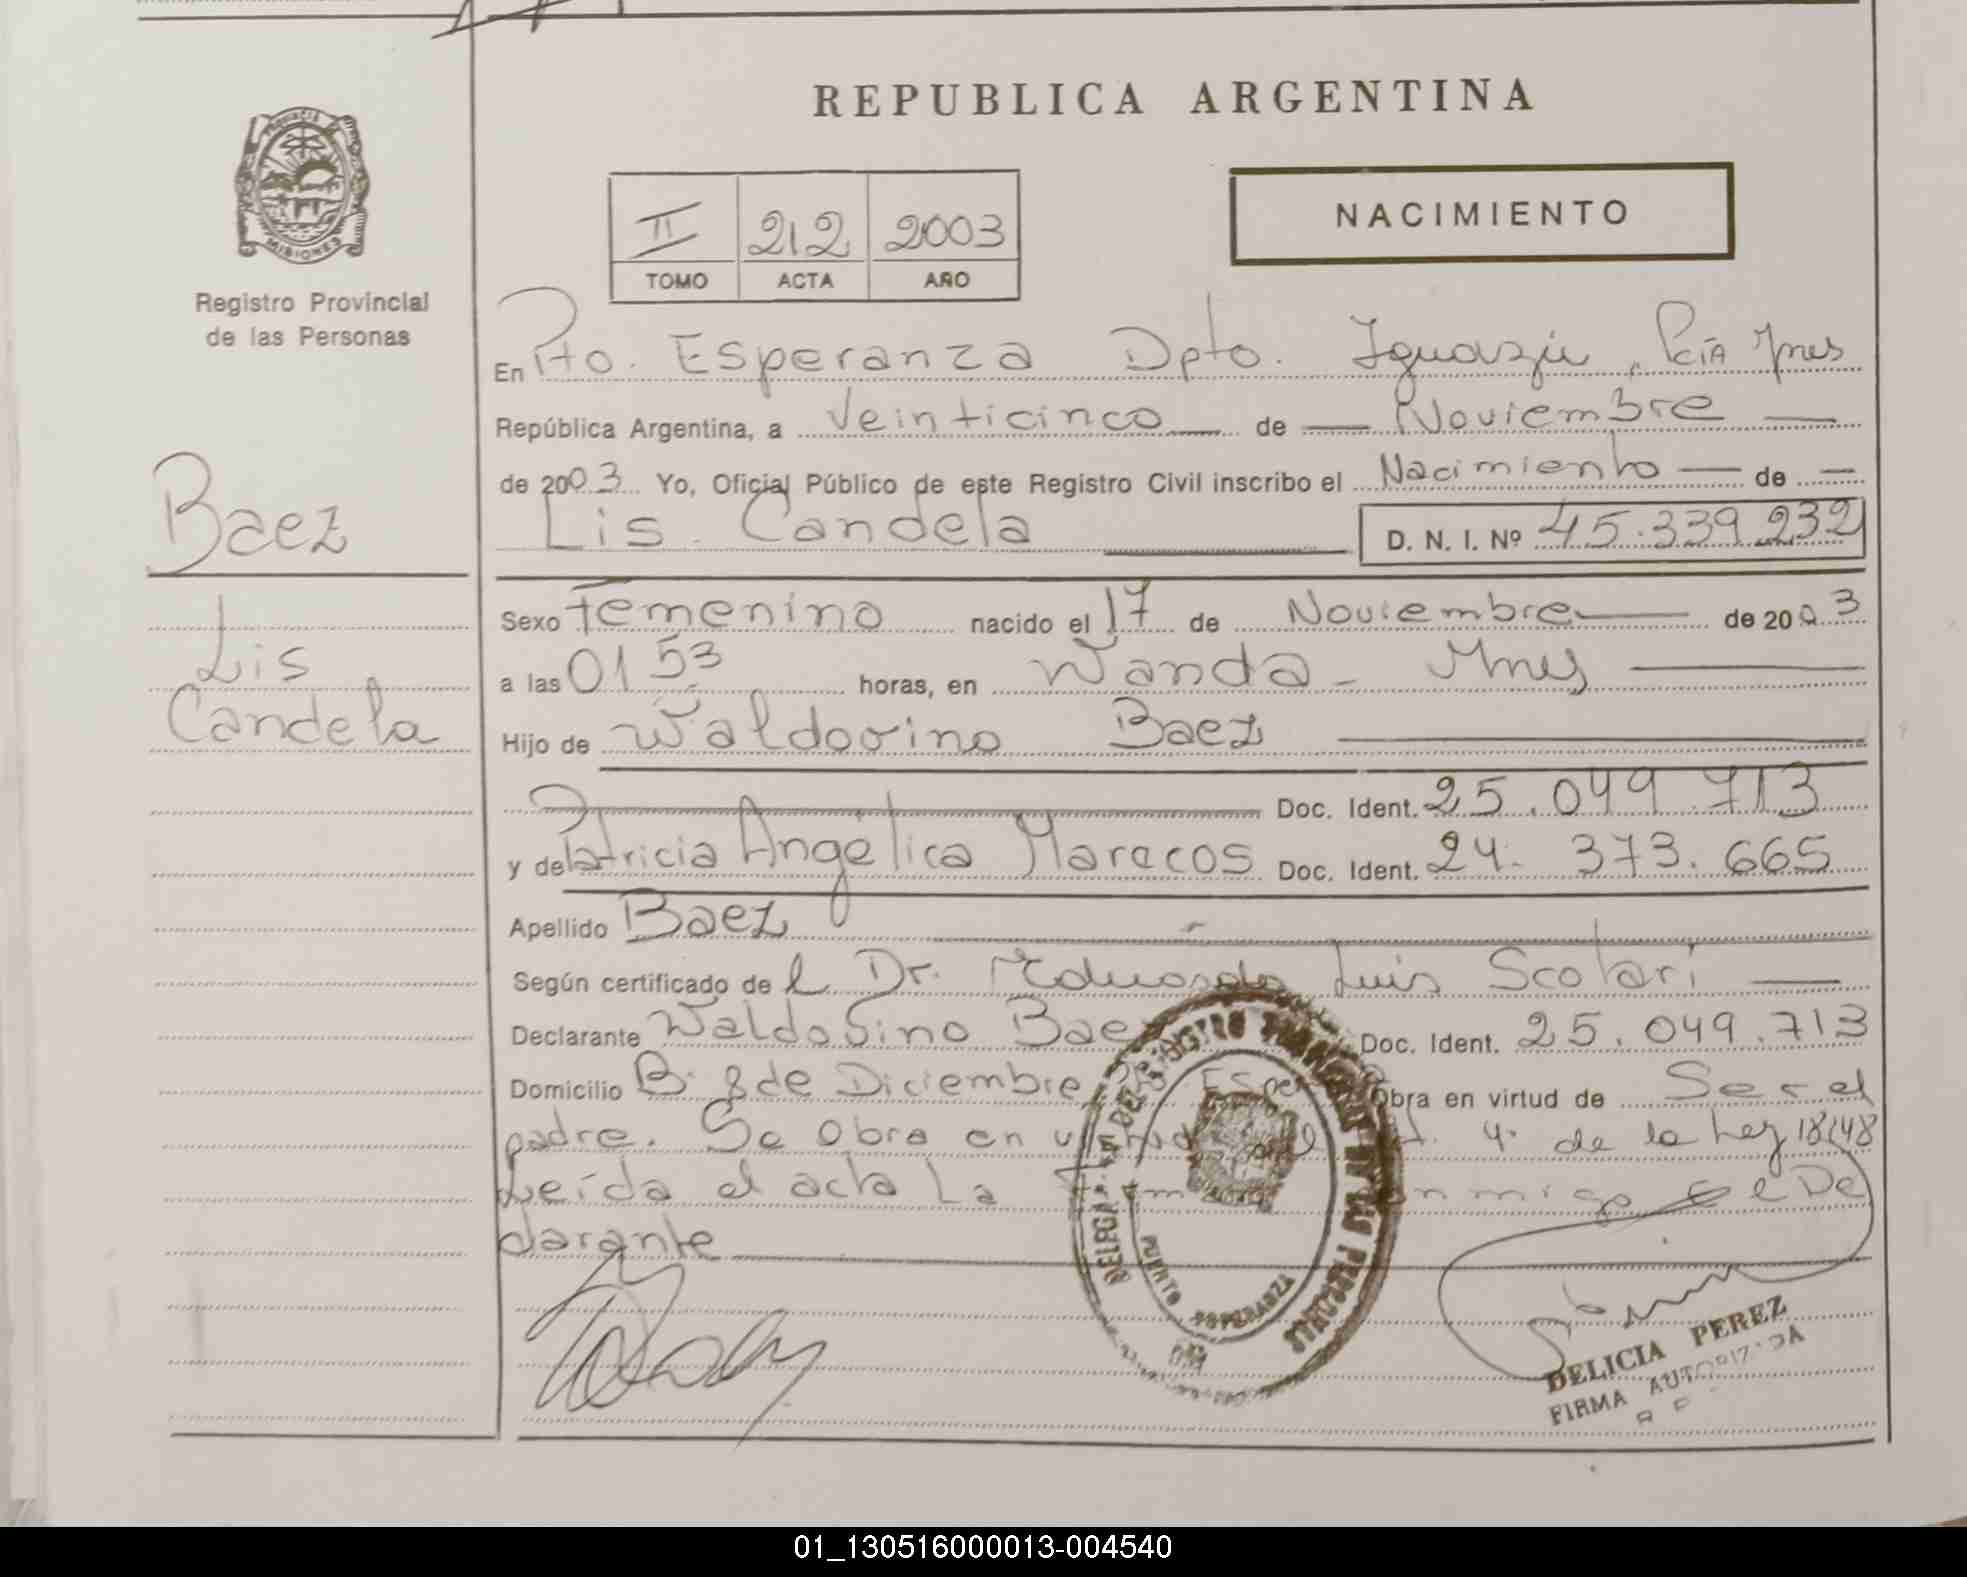 REPUBLICA ARGENTINA
MISIONES
Registro Provincial
de las Personas
II 212 2003
TOMO ACTA AÑO
NACIMIENTO
Baez
Lis
Candela
En Pto. Esperanza Dpto. Iguazú, Pcia Mnes
República Argentina, a Veinticinco de Noviembre
de 2003 Yo, Oficial Público de este Registro Civil inscribo el Nacimiento de
Lis Candela D. N. I. Nº 45.339.232
Sexo Femenino nacido el 17 de Noviembre de 2003
a las 01 53 horas, en Wanda - Mnes
Hijo de Waldovino Baez
Doc. Ident. 25.049.713
y de Patricia Angelica Marecos Doc. Ident. 24.373.665
Apellido Baez
Según certificado de l Dr. Eduardo Luis Scolari
Declarante Waldovino Baez Doc. Ident. 25.049.713
Domicilio B. 8 de Diciembre Obra en virtud de Ser el
padre. Se Obra en 4º de la Ley 18248
Leida el acta La conmigo el De
clarante
PUERTO ESPERANZA
DELICIA PEREZ
FIRMA AUTORIZADA
01_130516000013-004540